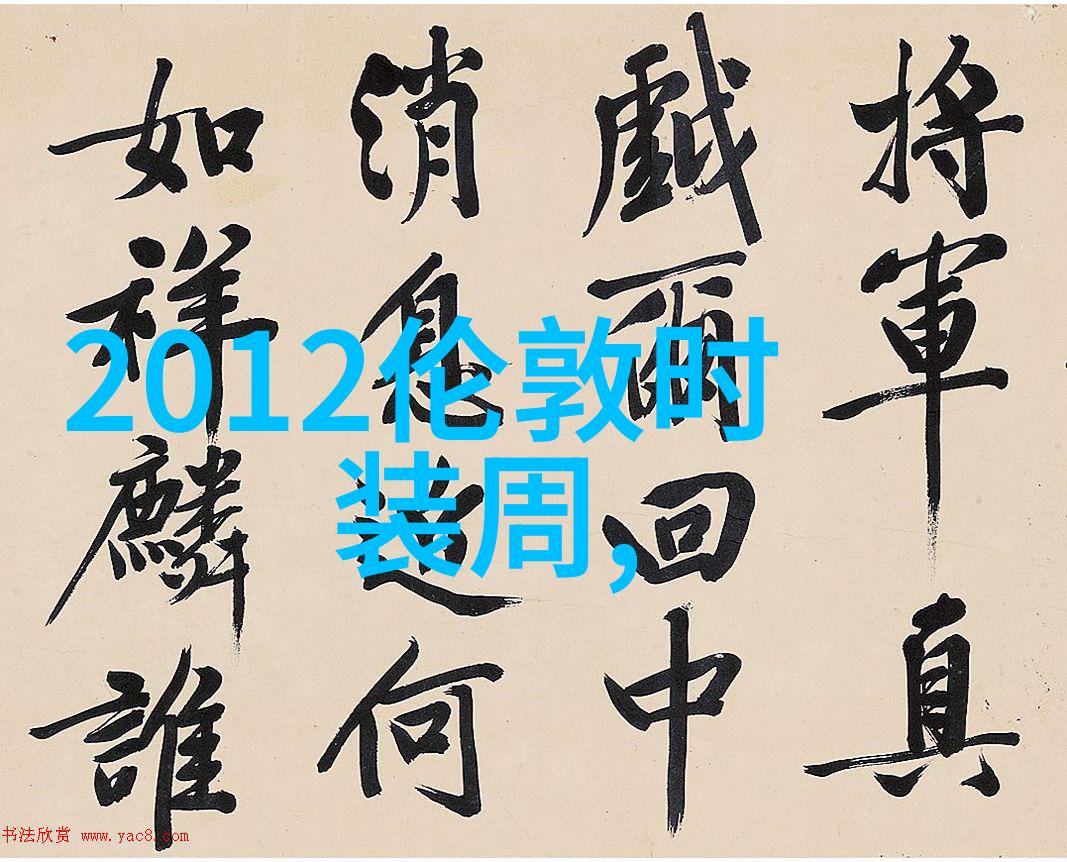 将軍真
戲爾回中
消息何
如祥麟誰
2012伦敦时
装周,
书法欣赏 www.yac8.com